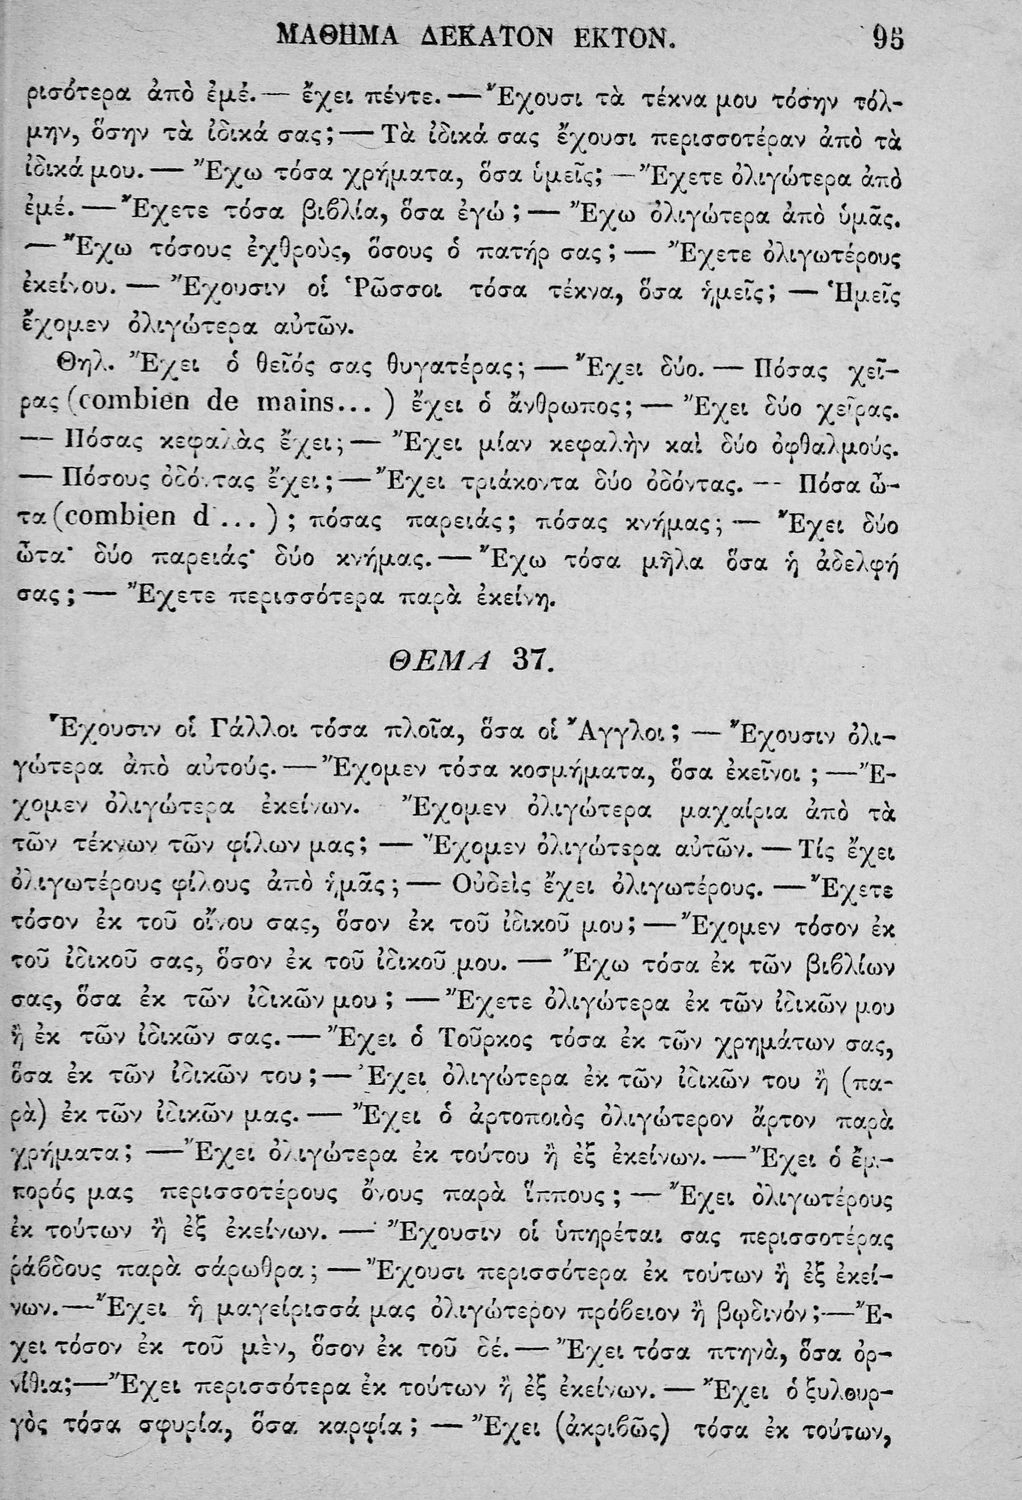 ΜΑΘΗΜΑ ΔΕΚΑΤΟΝ ΕΚΤΟΝ. 95
ρισότερα ἀπὸ ἐμέ. — ἔχει πέντε. — Ἔχουσι τὰ τέκνα μου τόσην τόλ-
μην, ὅσην τὰ ἰδικά σας; — Τὰ ἰδικά σας ἔχουσι περισσοτέραν ἀπὸ τὰ
ἰδικά μου. — Ἔχω τόσα χρήματα, ὅσα ὑμεῖς; — Ἔχετε ὀλιγώτερα ἀπὸ
ἐμέ. — Ἔχετε τόσα βιβλία, ὅσα ἐγώ; — Ἔχω ὀλιγώτερα ἀπὸ ὑμᾶς.
— Ἔχω τόσους ἐχθροὺς, ὅσους ὁ πατήρ σας; — Ἔχετε ὀλιγωτέρους
ἐκείνου. — Ἔχουσιν οἱ Ῥῶσσοι τόσα τέκνα, ὅσα ἡμεῖς; — Ἡμεῖς
ἔχομεν ὀλιγώτερα αὐτῶν.
Θηλ. Ἔχει ὁ θεῖός σας θυγατέρας; — Ἔχει δύο. — Πόσας χεῖ-
ρας (combien de mains... ) ἔχει ὁ ἄνθρωπος; — Ἔχει δύο χεῖρας.
— Πόσας κεφαλὰς ἔχει; — Ἔχει μίαν κεφαλὴν καὶ δύο ὀφθαλμούς.
— Πόσους ὀδόντας ἔχει; — Ἔχει τριάκοντα δύο ὀδόντας. — Πόσα ὦ-
τα (combien d'... ) ; πόσας παρειάς; πόσας κνήμας; — Ἔχει δύο
ὦτα· δύο παρειάς· δύο κνήμας. — Ἔχω τόσα μῆλα ὅσα ἡ ἀδελφή
σας; — Ἔχετε περισσότερα παρὰ ἐκείνη.
ΘΕΜΑ 37.
Ἔχουσιν οἱ Γάλλοι τόσα πλοῖα, ὅσα οἱ Ἄγγλοι; — Ἔχουσιν ὀλι-
γώτερα ἀπὸ αὐτούς. — Ἔχομεν τόσα κοσμήματα, ὅσα ἐκεῖνοι ; — Ἔ-
χομεν ὀλιγώτερα ἐκείνων. Ἔχομεν ὀλιγώτερα μαχαίρια ἀπὸ τὰ
τῶν τέκνων τῶν φίλων μας; — Ἔχομεν ὀλιγώτερα αὐτῶν. — Τίς ἔχει
ὀλιγωτέρους φίλους ἀπὸ ἡμᾶς; — Οὐδεὶς ἔχει ὀλιγωτέρους. — Ἔχετε
τόσον ἐκ τοῦ οἴνου σας, ὅσον ἐκ τοῦ ἰδικοῦ μου; — Ἔχομεν τόσον ἐκ
τοῦ ἰδικοῦ σας, ὅσον ἐκ τοῦ ἰδικοῦ μου. — Ἔχω τόσα ἐκ τῶν βιβλίων
σας, ὅσα ἐκ τῶν ἰδικῶν μου ; — Ἔχετε ὀλιγώτερα ἐκ τῶν ἰδικῶν μου
ἢ ἐκ τῶν ἰδικῶν σας. — Ἔχει ὁ Τοῦρκος τόσα ἐκ τῶν χρημάτων σας,
ὅσα ἐκ τῶν ἰδικῶν του; — Ἔχει ὀλιγώτερα ἐκ τῶν ἰδικῶν του ἢ (πα-
ρὰ) ἐκ τῶν ἰδικῶν μας. — Ἔχει ὁ ἀρτοποιὸς ὀλιγώτερον ἄρτον παρὰ
χρήματα; — Ἔχει ὀλιγώτερα ἐκ τούτου ἢ ἐξ ἐκείνων. — Ἔχει ὁ ἔμ-
πορός μας περισσοτέρους ὄνους παρὰ ἵππους ; — Ἔχει ὀλιγωτέρους
ἐκ τούτων ἢ ἐξ ἐκείνων. — Ἔχουσιν οἱ ὑπηρέται σας περισσοτέρας
ῥάβδους παρὰ σάρωθρα; — Ἔχουσι περισσότερα ἐκ τούτων ἢ ἐξ ἐκεί-
νων. — Ἔχει ἡ μαγείρισσά μας ὀλιγώτερον πρόβειον ἢ βῳδινόν; — Ἔ-
χει τόσον ἐκ τοῦ μὲν, ὅσον ἐκ τοῦ δέ. — Ἔχει τόσα πτηνὰ, ὅσα ὀρ-
νίθια; — Ἔχει περισσότερα ἐκ τούτων ἢ ἐξ ἐκείνων. — Ἔχει ὁ ξυλουρ-
γὸς τόσα σφυρία, ὅσα καρφία ; — Ἔχει (ἀκριβῶς) τόσα ἐκ τούτων,